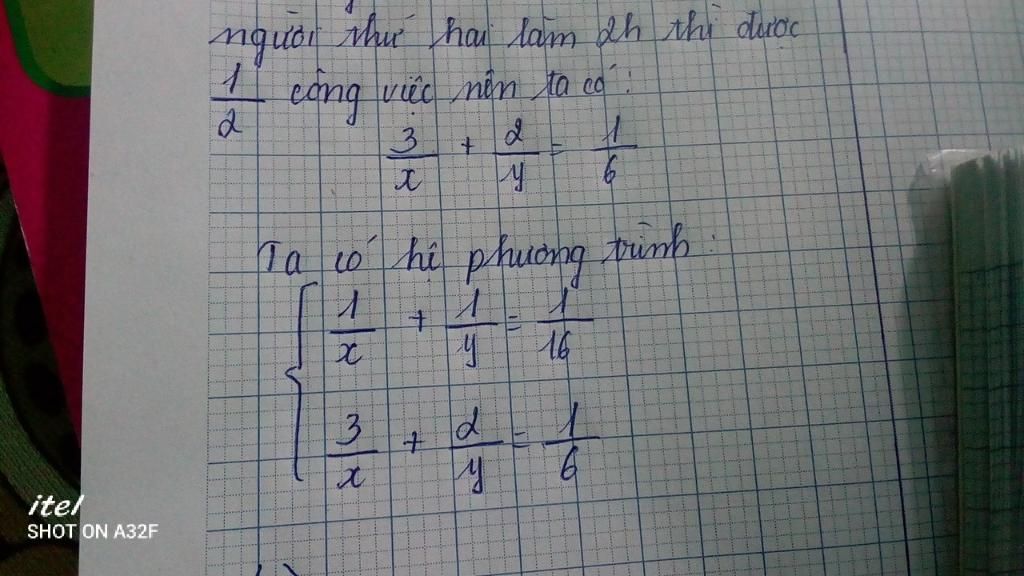 người thứ hai làm 2h thì được
1/2 công việc nên ta có:
3/x + 2/y = 1/6
Ta có hệ phương trình:
1/x + 1/y = 1/16
3/x + 2/y = 1/6
itel
SHOT ON A32F